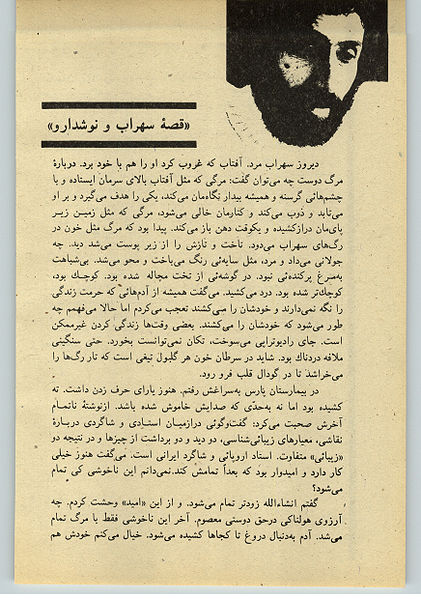 «قصهٔ سهراب و نوشدارو»
دیروز سهراب مرد. آفتاب که غروب کرد او را هم با خود برد. دوبارهٔ
مرگ دوست چه می‌توان گفت: مرگی که مثل آفتاب بالای سرمان ایستاده و با
چشم‌هائی گرسنه و همیشه بیدار نگاه‌مان می‌کند، یکی را هدف می‌گیرد و بر او
می‌تابد و ذوب می‌کند و کنارمان خالی می‌شود، مرگی که مثل زمین زیر
پای‌مان درازکشیده و یکوقت دهن باز می‌کند. پیدا بود که مرگ مثل خون در
رگ‌های سهراب می‌دود. تاخت و تازش را از زیر پوست می‌شد دید. چه
جولانی می‌داد و مرد، مثل سایه‌ئی رنگ می‌باخت و محو می‌شد. بی‌شباهت
به‌مرغ پرکنده‌ئی نبود. در گوشه‌ئی از تخت مچاله شده بود. کوچک بود،
کوچک‌تر شده بود. درد می‌کشید. می‌گفت همیشه از آدم‌هائی که حرمت زندگی
را نگه نمی‌دارند و خودشان را می‌کشند تعجب می‌کردم اما حالا می‌فهمم چه
طور می‌شود که خودشان را می‌کشند. بعضی وقت‌ها زندگی کردن غیرممکن
است. جای رادیوتراپی می‌سوخت، تکان نمی‌توانست بخورد. حتی سنگینی
ملافه دردناك بود. شاید در سرطان خون هر گلبول تیغی است که تار رگ‌ها را
می‌خراشد تا در گودال قلب فرو رود.
در بیمارستان پارس به‌سراغش رفتم. هنوز یارای حرف زدن داشت. ته
کشیده بود اما نه به‌حدّی که صدایش خاموش شده باشد. ازنوشتهٔ ناتمام
آخرش صحبت می‌کرد: گفت‌وگوئی درازمیان استادی و شاگردی دربارهٔ
نقاشی، معیارهای زیبائی‌شناسی، دو دید و دو برداشت از چیزها و در نتیجه دو
«زیبائی» متفاوت. استاد اروپائی و شاگرد ایرانی است. می‌گفت هنوز خیلی
کار دارد و امیدوار بود که بعداً تمامش کند.نمی‌دانم این ناخوشی کی تمام
می‌شود؟
گفتم انشاءالله زودتر تمام می‌شود. و از این «امید» وحشت کردم. چه
آرزوی هولناکی درحق دوستی معصوم. آخر این ناخوشی فقط با مرگ تمام
می‌شد. آدم به‌دنبال دروغ تا کجاها کشیده می‌شود. خیال می‌کنم خودش هم